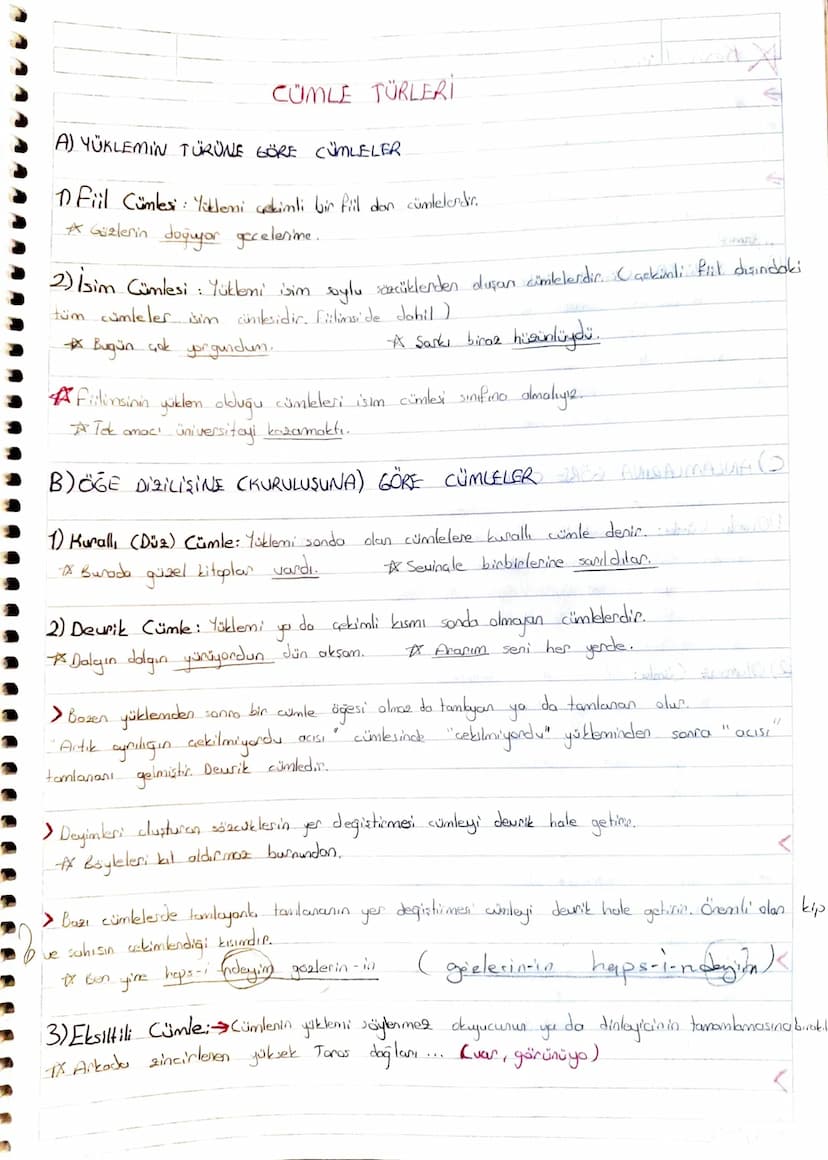 CÜMLE TÜRLERİ
A) YÜKLEMİN TÜRÜNE GÖRE CÜMLELER
1) Fiil Cümlesi: Yüklemi çekimli bir fiil olan cümlelerdir.
☆ Gözlerin doğuyor gecelerime.
2) İsim Cümlesi: Yüklemi isim soylu sözcüklerden oluşan cümlelerdir. (çekimli fiil dışındaki
tüm cümleler isim cümlesidir. Fiilimsi de dahil)
☆ Bugün çok yorgundum. ☆ Şarkı biraz hüzünlüydü.
☆ Fiilimsinin yüklem olduğu cümleleri isim cümlesi sınıfına almalıyız.
☆ Tek amacı üniversiteyi kazanmaktı.
B) ÖĞE DİZİLİŞİNE (KURULUŞUNA) GÖRE CÜMLELER
1) Kurallı (Düz) Cümle: Yüklemi sonda olan cümlelere kurallı cümle denir.
☆ Burada güzel kitaplar vardı. ☆ Sevinçle birbirlerine sarıldılar.
2) Devrik Cümle: Yüklemi ya da çekimli kısmı sonda olmayan cümlelerdir.
☆ Dalgın dalgın yürüyordun dün akşam. ☆ Ararım seni her yerde.
> Bazen yüklemden sonra bir cümle öğesi olmaz da tamlayan ya da tamlanan olur.
"Artık ayrılığın çekilmiyordu acısı" cümlesinde "çekilmiyordu" yükleminden sonra "acısı"
tamlananı gelmiştir. Devrik cümledir.
> Deyimleri oluşturan sözcüklerin yer değiştirmesi cümleyi devrik hale getirir.
☆ Böyleleri kıl aldırmaz burnundan.
> Bazı cümlelerde tamlayanla tamlananın yer değiştirmesi cümleyi devrik hale getirir. Önemli olan kip
ve şahısın çekimlendiği kısımdır.
☆ Ben yine haps-i ndeyim gözlerin-in (gözlerin-in haps-i-ndeyim)
3) Eksiltili Cümle: → Cümlenin yüklemi söylenmez okuyucunun ya da dinleyicinin tamamlamasına bırakıl
☆ Arkada zincirlenen yüksek Toros dağları ... (var, görünüyo)